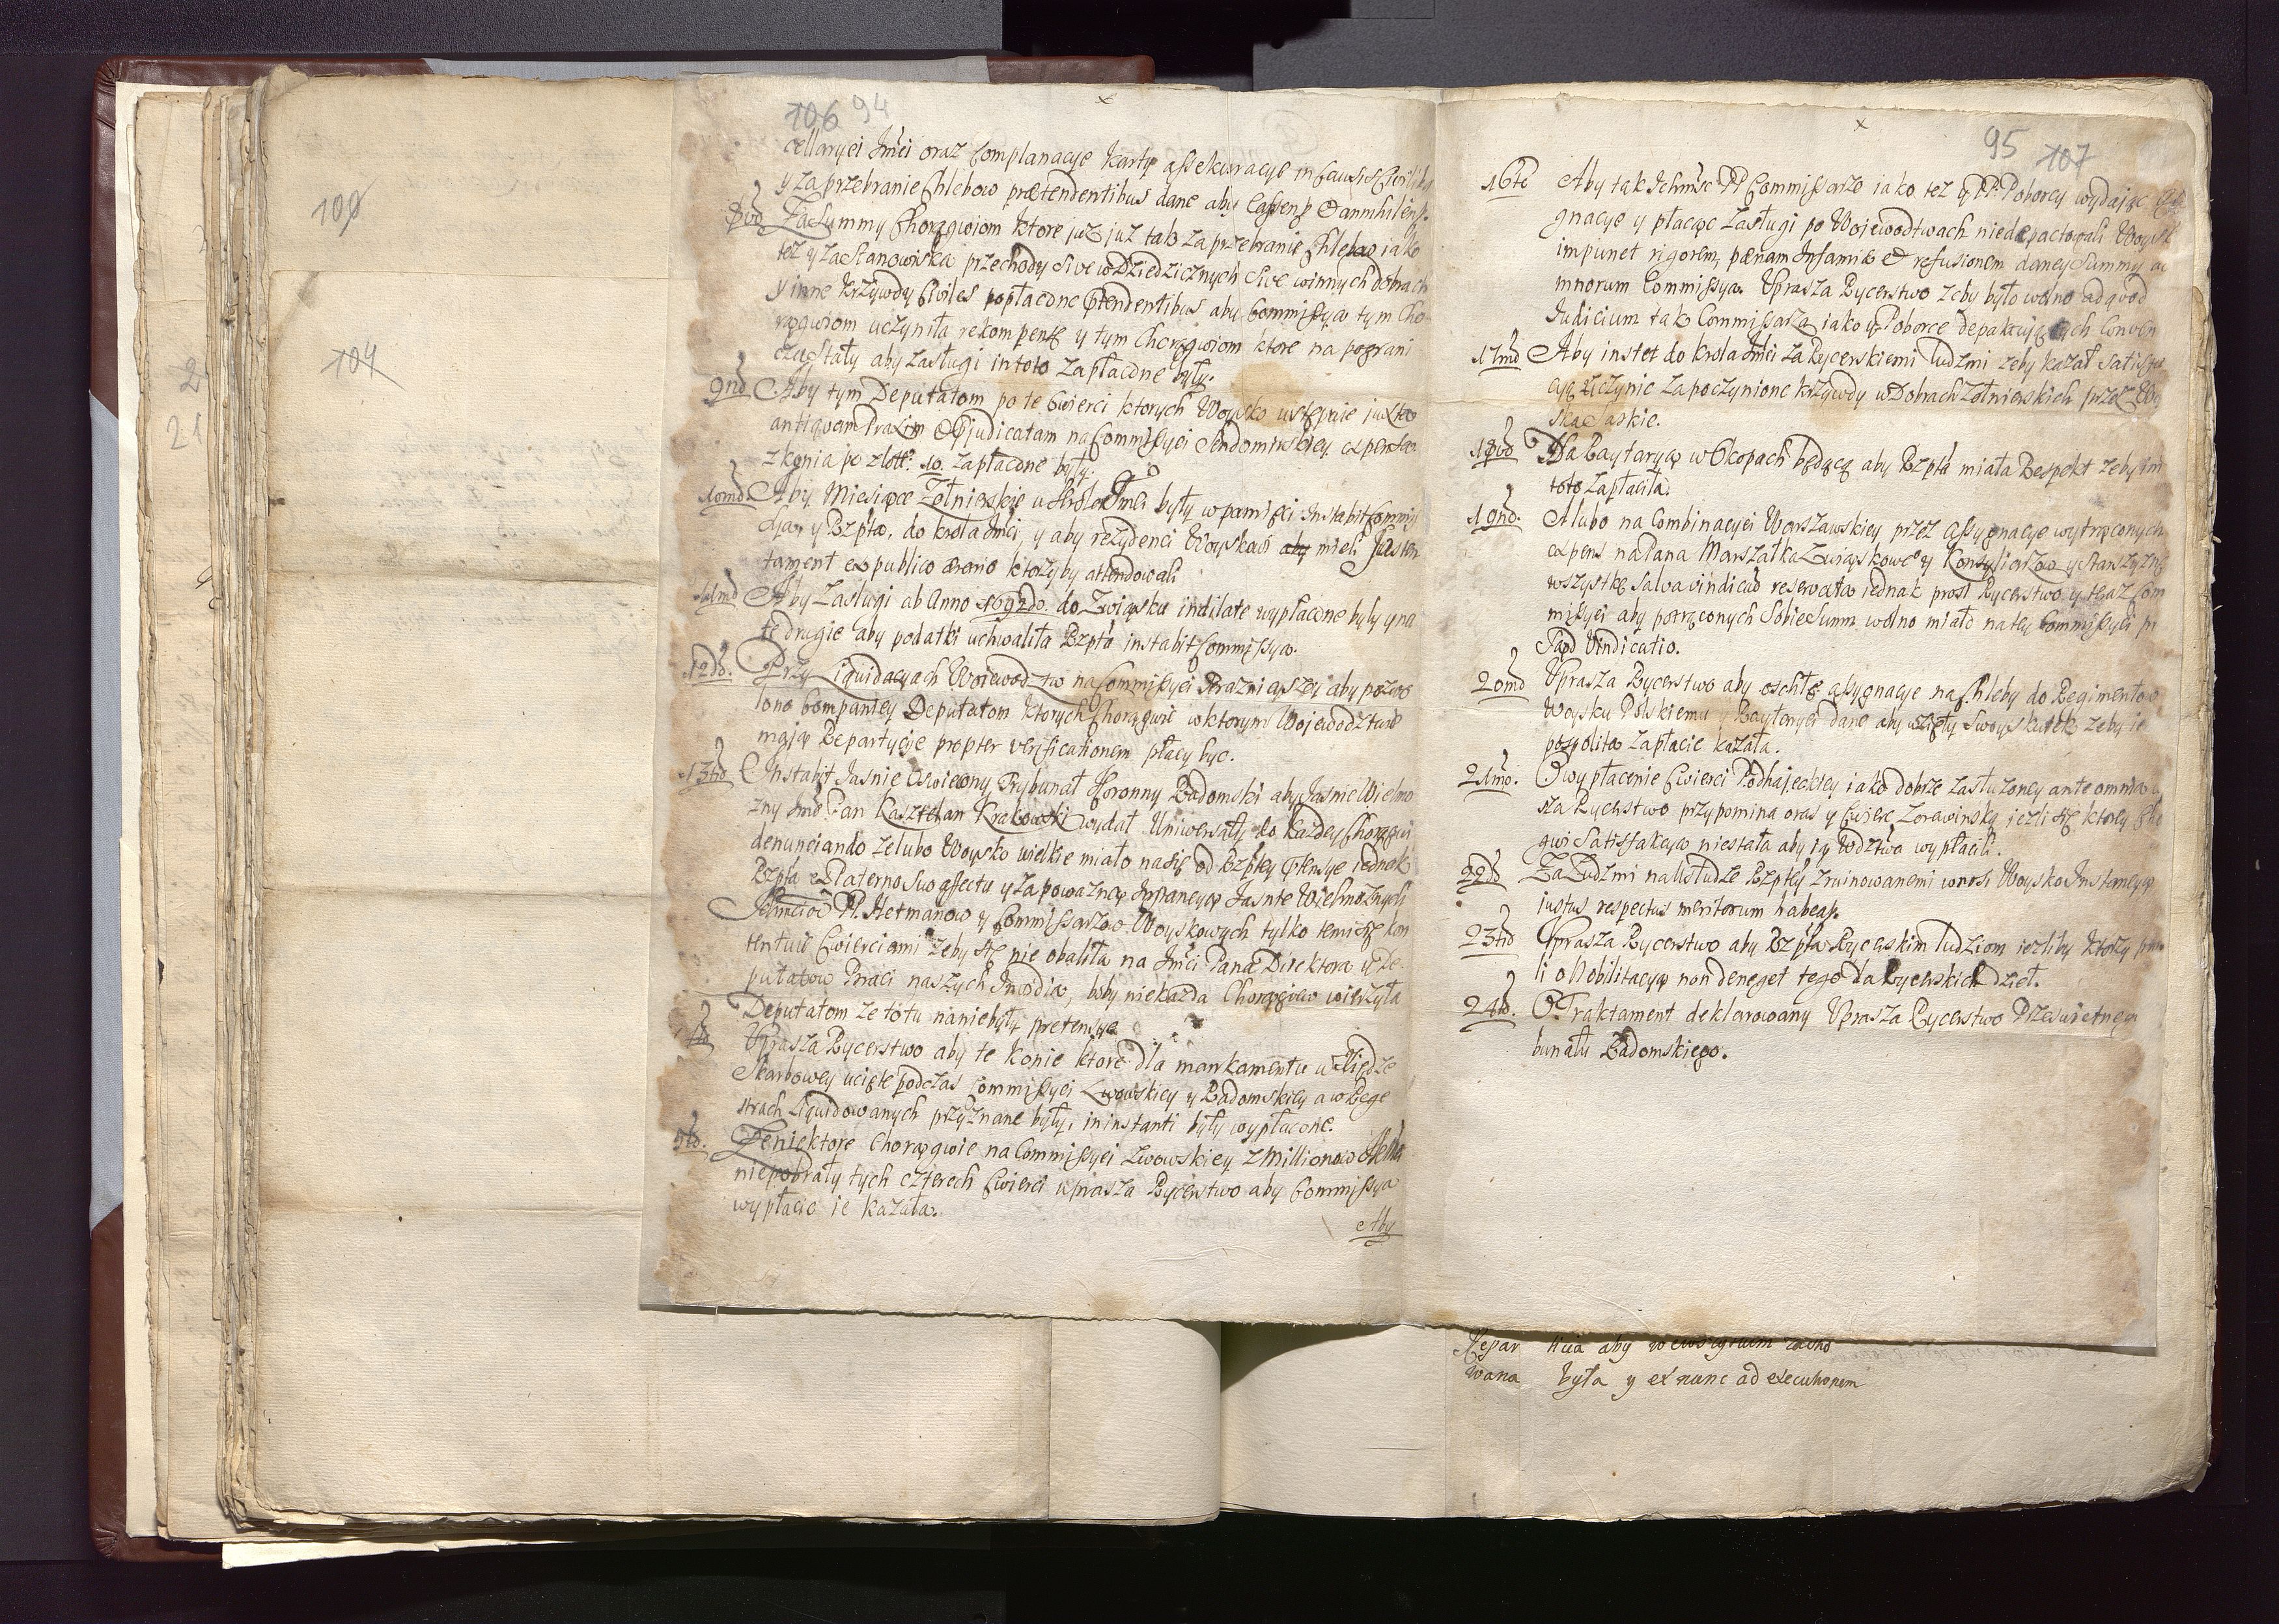 100
104
2
21
106 94
cellaryei Jmci oraz Complanacye karty assekuracye in Causis Civilibus
y za przebranie Chlebow prætendentibus dane aby cassent & annihilent.
8vo Za Summy Chorągwiom ktore już już tak za przebranie Chlebow iako
też y za Stanowiska przechody Sive w Dziedzicznych Sive w innych dobrach
y inne krzywdy Civiles popłacone ptendentibus aby Commissya tym Cho-
rągwiom uczyniła rekompensę y tym Chorągwiom ktore na pograni
czu stały aby zasługi in toto zapłacone były.
9no Aby tym Deputatom po te Cwierci ktorych Woysko ustępuie juxta
antiquam Praxim & pjudicatam na Commissyei Sendomirskiey expensa
z konia po złott: 10. zapłacone były.
10mo. Aby Miesiące Zołnierskie u Krola Jmci były w pamięci Instabit Commis
sya, y Rzpta. do Krola Jmci, y aby rezydenci Woyskowi aby mieli Susten
tament ex publico ærario ktorzyby attendowali
11mo Aby Zasługi ab Anno 1692do. do Związku indilate wypłacone były y na
te drugie aby podatki uchwaliła Rzpta instabit Commissya.
12do. Przy Liquidacyach Woiewodztw na Commissyei teraznieyszey aby pozwo
lono Kompaniey Deputatom ktorych Chorągwie w ktorym Wojewodztwie
mają Repartycie propter verificationem płacy byc.
13tio Instabit Jasnie Oswiecony Trybunał Koronny Radomski aby Jasnie Wielmo
zny Jmc Pan Kasztelan Krakowski wydał Uniwersały do każdey Chorągwi
denunciando ze lubo Woysko wielkie miało naslę od Rzptey ptensye iednak
Rzpta ex Paterno Suo affectu y za poważną Instancyą Jasnie Wielmożnych
Jchmciow PP. Hetmanow y Commissarzow Woyskowych tylko temi się kon
tentuie Cwierciami żeby się nie obaliła na Jmci Pana Direktora y De-
putatow Braci naszych Invidia, boby niekażda Chorągiew wierzyła
Deputatom ze totu na nie były pretensye
4to Uprasza Rycerstwo aby te konie ktore dla mankamentu w Xiędze
Skarbowey ucięte podczas Commissyei Lwowskiey y Radomskiey a w Rege
strach Liquidowanych przyznane były, in instanti były wypłacone.
5to. Ze niektore Chorągwie na Commissyei Lwowskiey z Millionow
niepobrały tych czterech Cwierci uprasza Rycerstwo aby Commissya
wypłacic ie kazała.
Aby
95 107
16to Aby tak Jchmsc PP Commissarze iako też y PP. Poborcy wydając Assy
gnacye y płacąc Zasługi po Wojewodtwach niedepactowali Woysk
impunet rigorem, pænam Infamiæ & refusionem daney Summy
mnorum Commissya. Uprasza Rycerstwo żeby było wolno ad quod
Iudicium tak Commissarza iako y Poborce depaktuiących Conven
17mo Aby instet do Krola Jmci za Rycerskiemi ludzmi zeby kazał satisfa
cyę uczynic za poczynione krzywdy w Dobrach Zołnierskich przez Woy
ska Saskie.
18vo Na Raytaryą w Okopach będącą aby Rzpta miała Respekt zeby im
toto zapłaciła.
19no. A lubo na Combinacyei Warszawskiey przez Assygnacye wytrąconych
expens na Pana Marszałka Związkowego y Konsyliarzow y Starszyznę
wszystkę Salva vindicta reservata iednak prosi Rycerstwo y teraz Com
missyei aby potrąconych Sobie Summ wolno miało na tey Commissyei
Vindicatio.
20mo Uprasza Rycerstwo aby oschłe assygnacye na Chleby do Regimentow
Woysku Polskiemu y Raytaryei dane aby wzięły Swoy skutek zeby ie
pospolita zapłacic kazała.
21mo. O wypłacenie Cwierci Podhajeckiey iako dobrze zasłużoney ante omnia
sza Rycerstwo przypomina oras y Cwierc Zorawinską jeżli się ktorey Cho
gwi Satisfakcya niestała aby ią Wdztwa wypłacili.
22do Za Ludzmi na Usłudze Rzptey zruinowanemi wnosi Woysko Instancyą
iustus respectus meritorum habeat.
23tio Uprasza Rycerstwo aby Rzpta Rycerskim ludziom ieżliby ktorzy
li o Nobilitacyą non deneget tego dla Rycerskich dzieł.
24to. O Traktament deklarowany Uprasza Rycerstwo Przeswietnego
bunału Radomskiego.
Repar ticia aby w ewsygrum zacho
wana była y ex nunc ad executionem